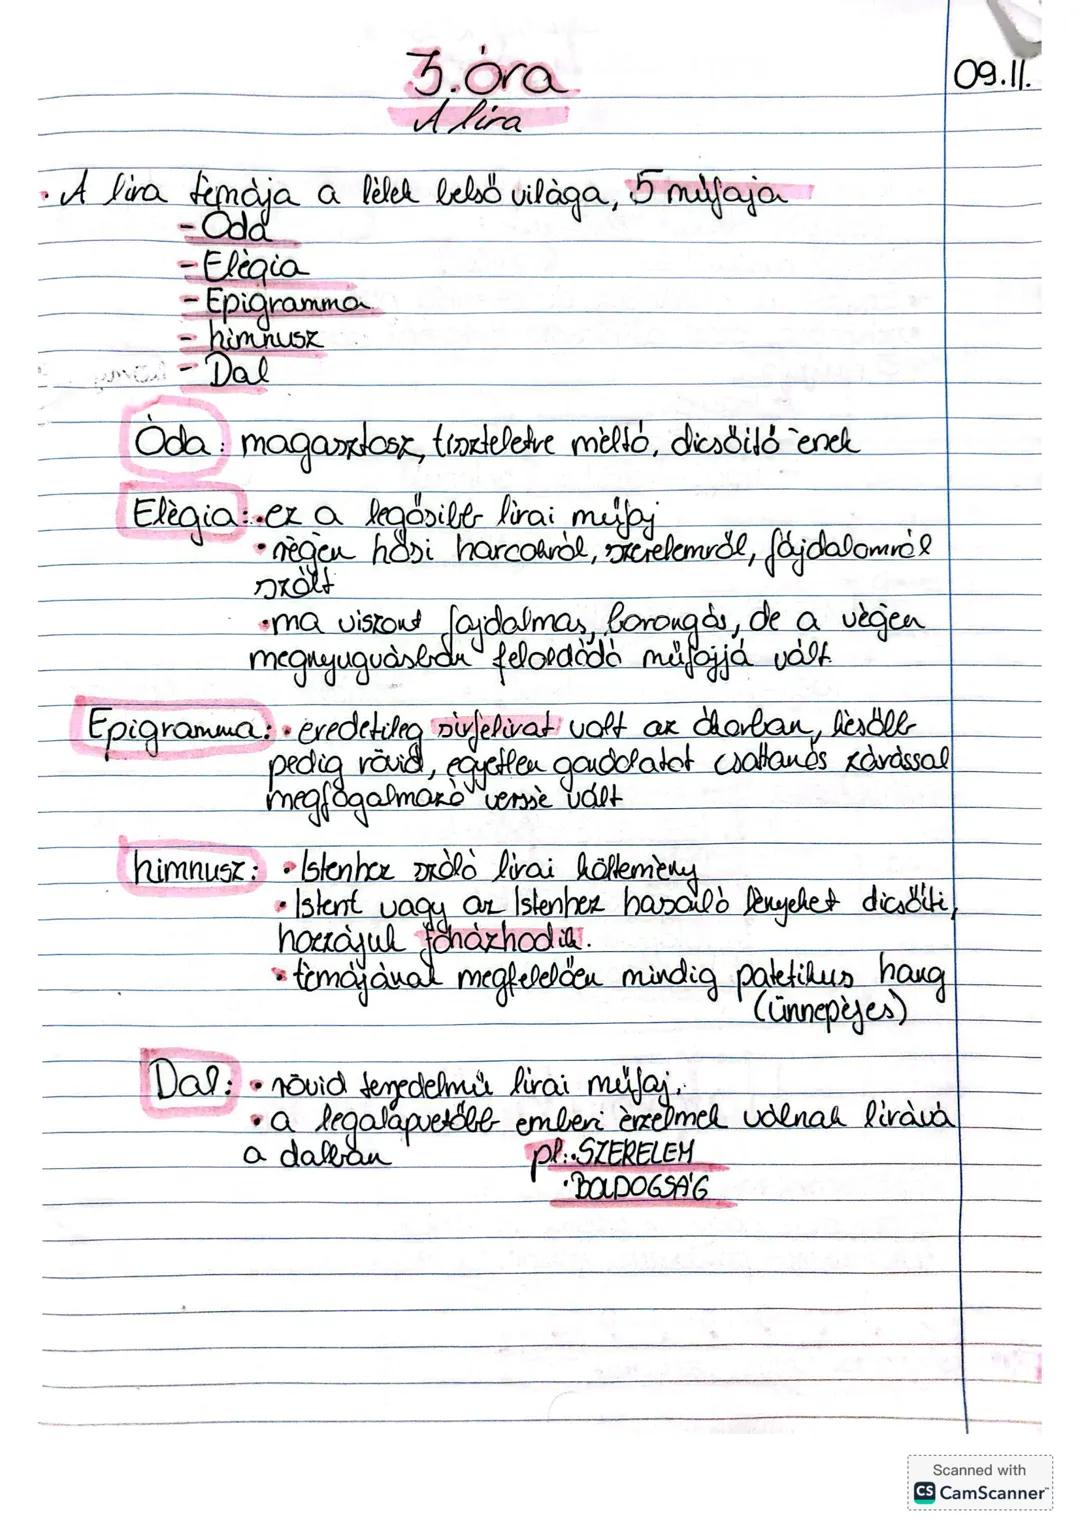 3. óra
09.11.
A líra
• A líra témája a lélek belső világa, 5 műfaja
- Óda
- Elégia
- Epigramma
- himnusz
- Dal
Óda: magasztosz, tiszteletre méltó, dicsőítő ének
Elégia: • ez a legősibb lírai műfaj
• régen hősi harcokról, szerelemről, fájdalomról
szólt
• ma viszont fájdalmas, borongás, de a végén
megnyugvásban feloldódó műfajjá vált
Epigramma: • eredetileg sírfelirat volt az ókorban, később
pedig rövid, egyetlen gondolatot csattanós zárással
megfogalmazó verssé vált
himnusz: • Istenhez szóló lírai költemény
• Istent vagy az Istenhez hasonló lényeket dicsőíti,
hozzájuk fohászkodik.
• témájának megfelelően mindig patetikus hang
(ünnepéjes)
Dal: • rövid terjedelmű lírai műfaj.
• a legalapvetőbb emberi érzelmek válnak lírává
a dalban pl.: • SZERELEM
• BOLDOGSÁG
Scanned with
CS CamScanner